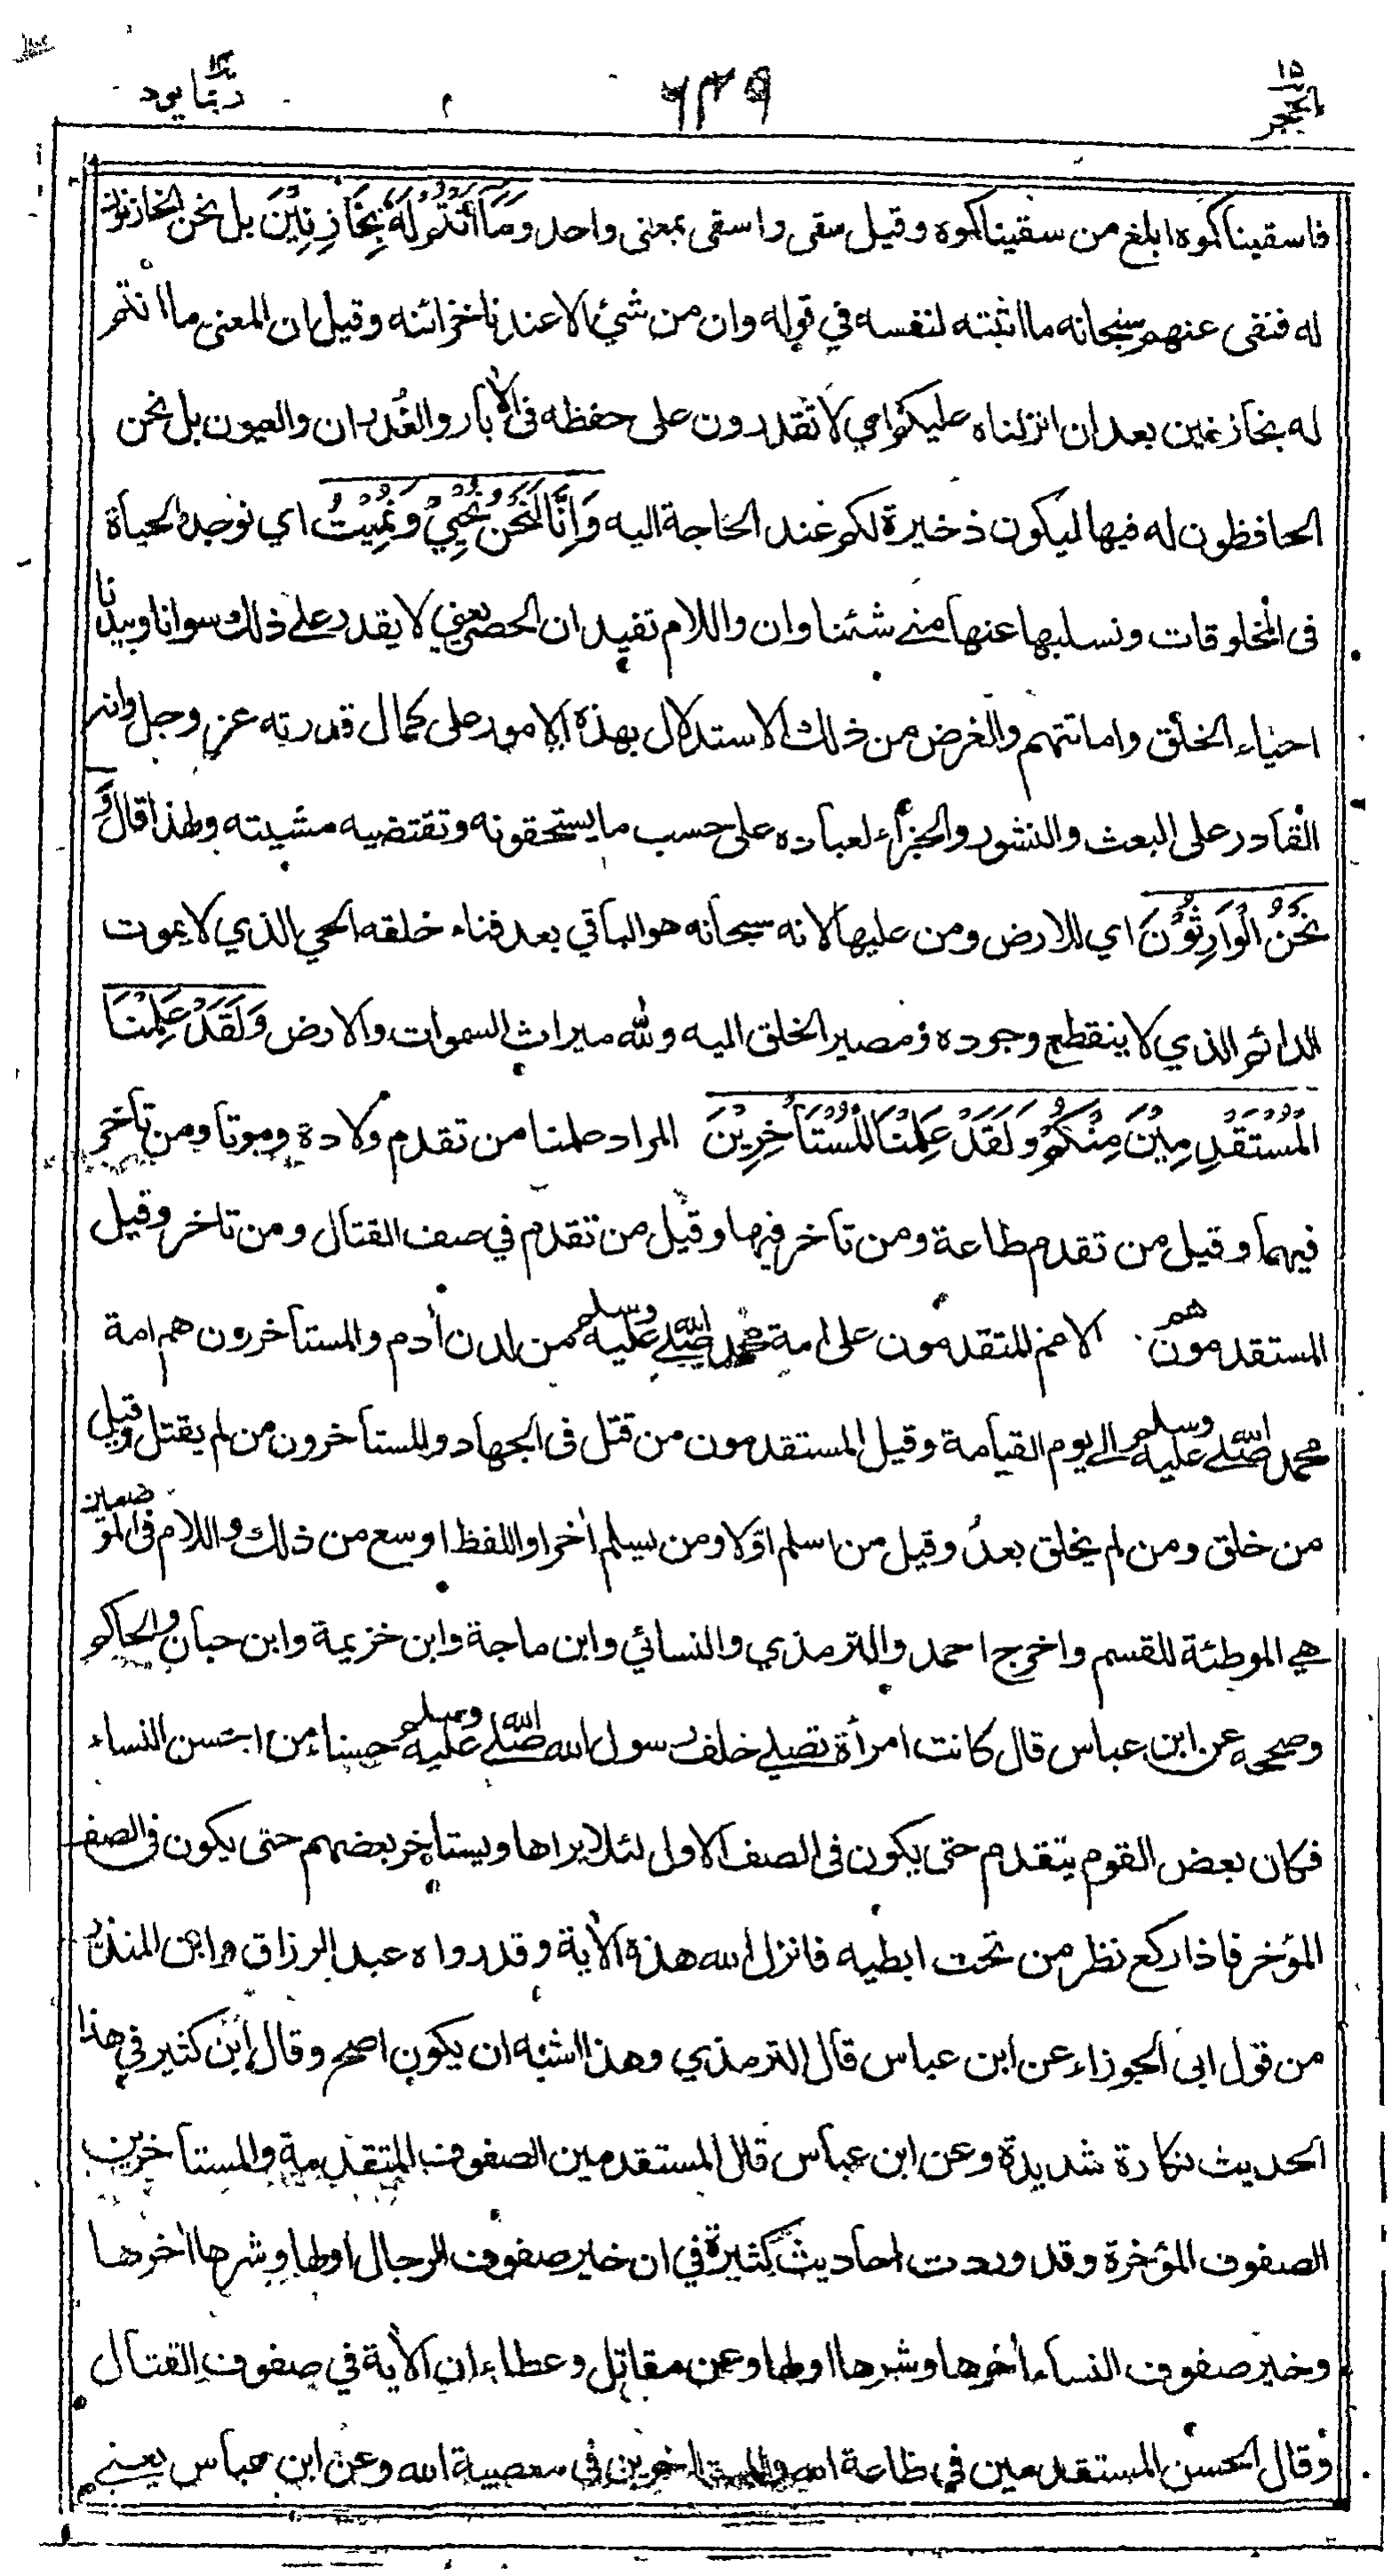 ١٥
الحجر
٦٣٩
١٤
ربما يود
فاسقيناكموه ابلغ من سقيناكموه وقيل سقى واسقى بمعنى واحد وَمَا أَنْتُمْ لَهُ بِخَازِنِيْنَ بل نحن الخازنون
له فنفى عنهم سبحانه ما اثبته لنفسه في قوله وان من شئ الا عندنا خزائنه وقيل ان المعنى ما انتم
له بخازنين بعد ان انزلناه عليكم اي لا تقدرون على حفظه فى الأبار والغُدران والعيون بل نحن
الحافظون له فيها ليكون ذخيرة لكم عند الحاجة اليه وَإِنَّا لَنَحْنُ نُحْيِيْ وَنُمِيْتُ اي نوجد الحياة
فى المخلوقات ونسلبها عنها متى شئنا وان واللام تفيد ان الحصر يعني لا يقدر على ذلك سوانا وبيدنا
احياء الخلق واماتتهم والغرض من ذلك الاستدلال بهذه الامور على كمال قدرته عز وجل وانه
القادر على البعث والنشور والجزاء لعباده على حسب ما يستحقونه وتقتضيه مشيته ولهذا قال وَ
نَحْنُ الْوَارِثُوْنَ اي للارض ومن عليها لانه سبحانه هو الباقي بعد فناء خلقه الحي الذي لا يموت
الدائم الذي لا ينقطع وجوده ومصير الخلق اليه ولله ميراث السموات والارض وَلَقَدْ عَلِمْنَا
الْمُسْتَقْدِمِيْنَ مِنْكُمْ وَلَقَدْ عَلِمْنَا الْمُسْتَأْخِرِيْنَ المراد علمنا من تقدم ولادة وموتا ومن تأخر
فيهما وقيل من تقدم طاعة ومن تأخر فيها وقيل من تقدم في صف القتال ومن تاخر وقيل
المستقدمون هم الامم المتقدمون على امة محمد صلى الله عليه وسلم من لدن أدم والمستأخرون هم امة
محمد صلى الله عليه وسلم الى يوم القيامة وقيل المستقدمون من قتل فى الجهاد والمستأخرون من لم يقتل وقيل
من خلق ومن لم يخلق بعدُ وقيل من اسلم اوّلا ومن يسلم أخرا واللفظ اوسع من ذلك واللام فى الموضعين
هي الموطئة للقسم واخرج احمد والترمذي والنسائي وابن ماجة وابن خزيمة وابن حبان والحاكم
وصححه عن ابن عباس قال كانت امرأة تصلي خلف رسول الله صلى الله عليه وسلم حسناء من احسن النساء
فكان بعض القوم يتقدم حتى يكون فى الصف الاول لئلا يراها ويستأخر بعضهم حتى يكون فى الصف
المؤخر فاذا ركع نظر من تحت ابطيه فانزل الله هذه الأية وقد رواه عبد الرزاق وابن المنذر
من قول ابى الجوزاء عن ابن عباس قال الترمذي وهذا اشبه ان يكون اصح وقال ابن كثير في هذا
الحديث نكارة شديدة وعن ابن عباس قال المستقدمين الصفوف المتقدمة والمستأخرين
الصفوف المؤخرة وقد وردت احاديث كثيرة في ان خير صفوف الرجال اولها وشرها أخرها
وخير صفوف النساء أخرها وشرها اولها وعن مقاتل وعطاء ان الأية في صفوف القتال
وقال الحسن المستقدمين في طاعة الله والمستأخرين في معصية الله وعن ابن عباس يعني